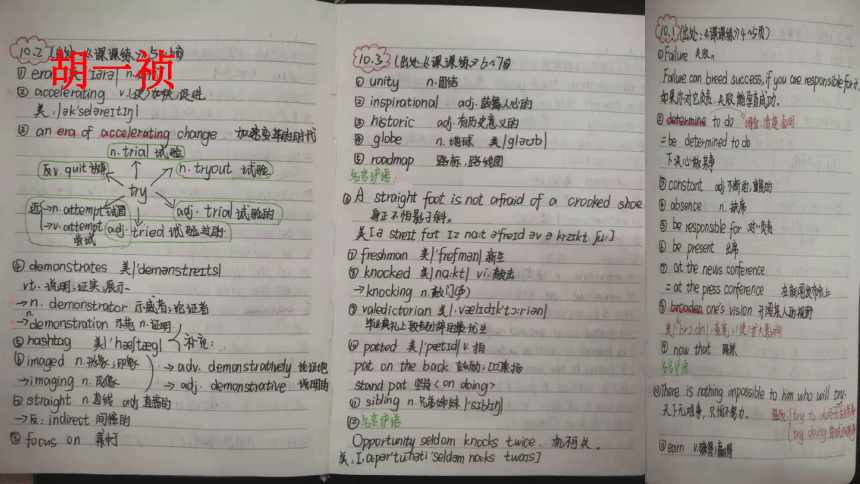 10.2 (出处:《课课练》5~6页
胡一祯
① era 美|ˈɪərə| n.
② accelerating v.(使)加快,促进
美.|əkˈseləreɪtɪŋ|
③ an era of accelerating change 加速变革的时代
n. trial 试验
反v. quit 放弃
n. tryout 试验
try
近→n. attempt 试图
→v. attempt 尝试
adj. trial 试验的
adj. tried 试验过的
④ demonstrates 美|ˈdemənstreɪts|
vt. 说明;证实;展示
→n. demonstrator 示威者;论证者
→n. demonstration 示范 n.证明
⑤ hashtag 美|ˈhæʃtæg|
补充:
⑥ imaged n.形象;印象
→imaging n.成像
→adv. demonstratively 论证地
→adj. demonstrative 说明的
⑦ straight n.直线 adj.直接的
→反: indirect 间接的
⑧ focus on 集中
10.3 (出处:《课课练》6~7页
① unity n.团结
② inspirational adj.鼓舞人心的
③ historic adj.有历史意义的
④ globe n.地球 美|gləʊb|
⑤ roadmap 路标,路线图
名言谚语:
⑥ A straight foot is not afraid of a crooked shoe
身正不怕影子斜。
⑦ freshman 美|ˈfreʃmən| 新生
⑧ knocked 美|nɑ:kt| vi.敲击
→knocking n.敲门(声)
⑨ valedictorian 美|ˌvælɪdɪkˈtɔ:riən|
⑩ patted 美|ˈpætɪd| v.拍
pat on the back 鼓励;口头表扬
stand pat 坚持<on doing>
⑪ sibling n.兄弟姊妹 |ˈsɪblɪŋ|
⑫名言谚语
Opportunity seldom knocks twice. 机不可失.
10.1 (出处:《课课练》4~5页)
①Failure 失败n
Failure can breed success, if you are responsible for it.
如果你对它负责,失败能孕育成功。
② determine to do
=be determined to do
下决心做某事
③ constant adj不断的,重复的
④ absence n.缺席
⑤ be responsible for 对…负责
⑥ be present 出席
⑦ at the news conference
= at the press conference 在新闻发布会上
⑧ broaden one's vision 开阔某人的视野
⑨ now that 既然
名言谚语
⑩There is nothing impossible to him who will try.
天下无难事,只怕不努力。
try to do
try doing
⑪earn v.赚得;赢得